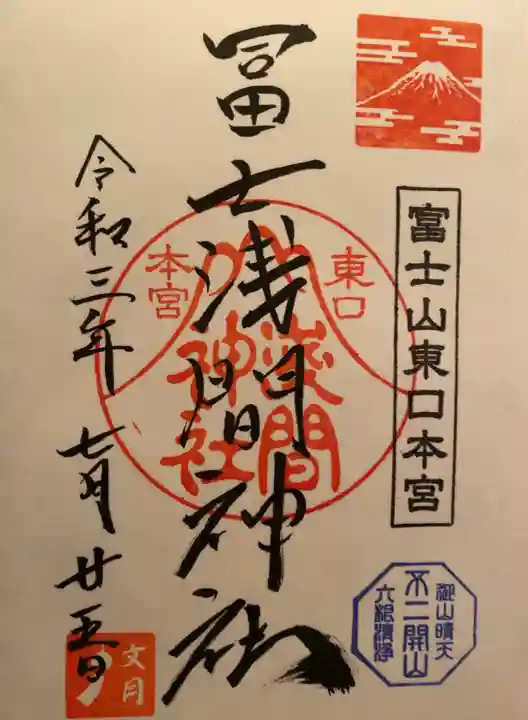 富士山東口本宮
不二開山
御山晴天
六根清浄
冨士浅間神社
東口
本宮
浅間
神社
令和三年 七月廿五日
文月